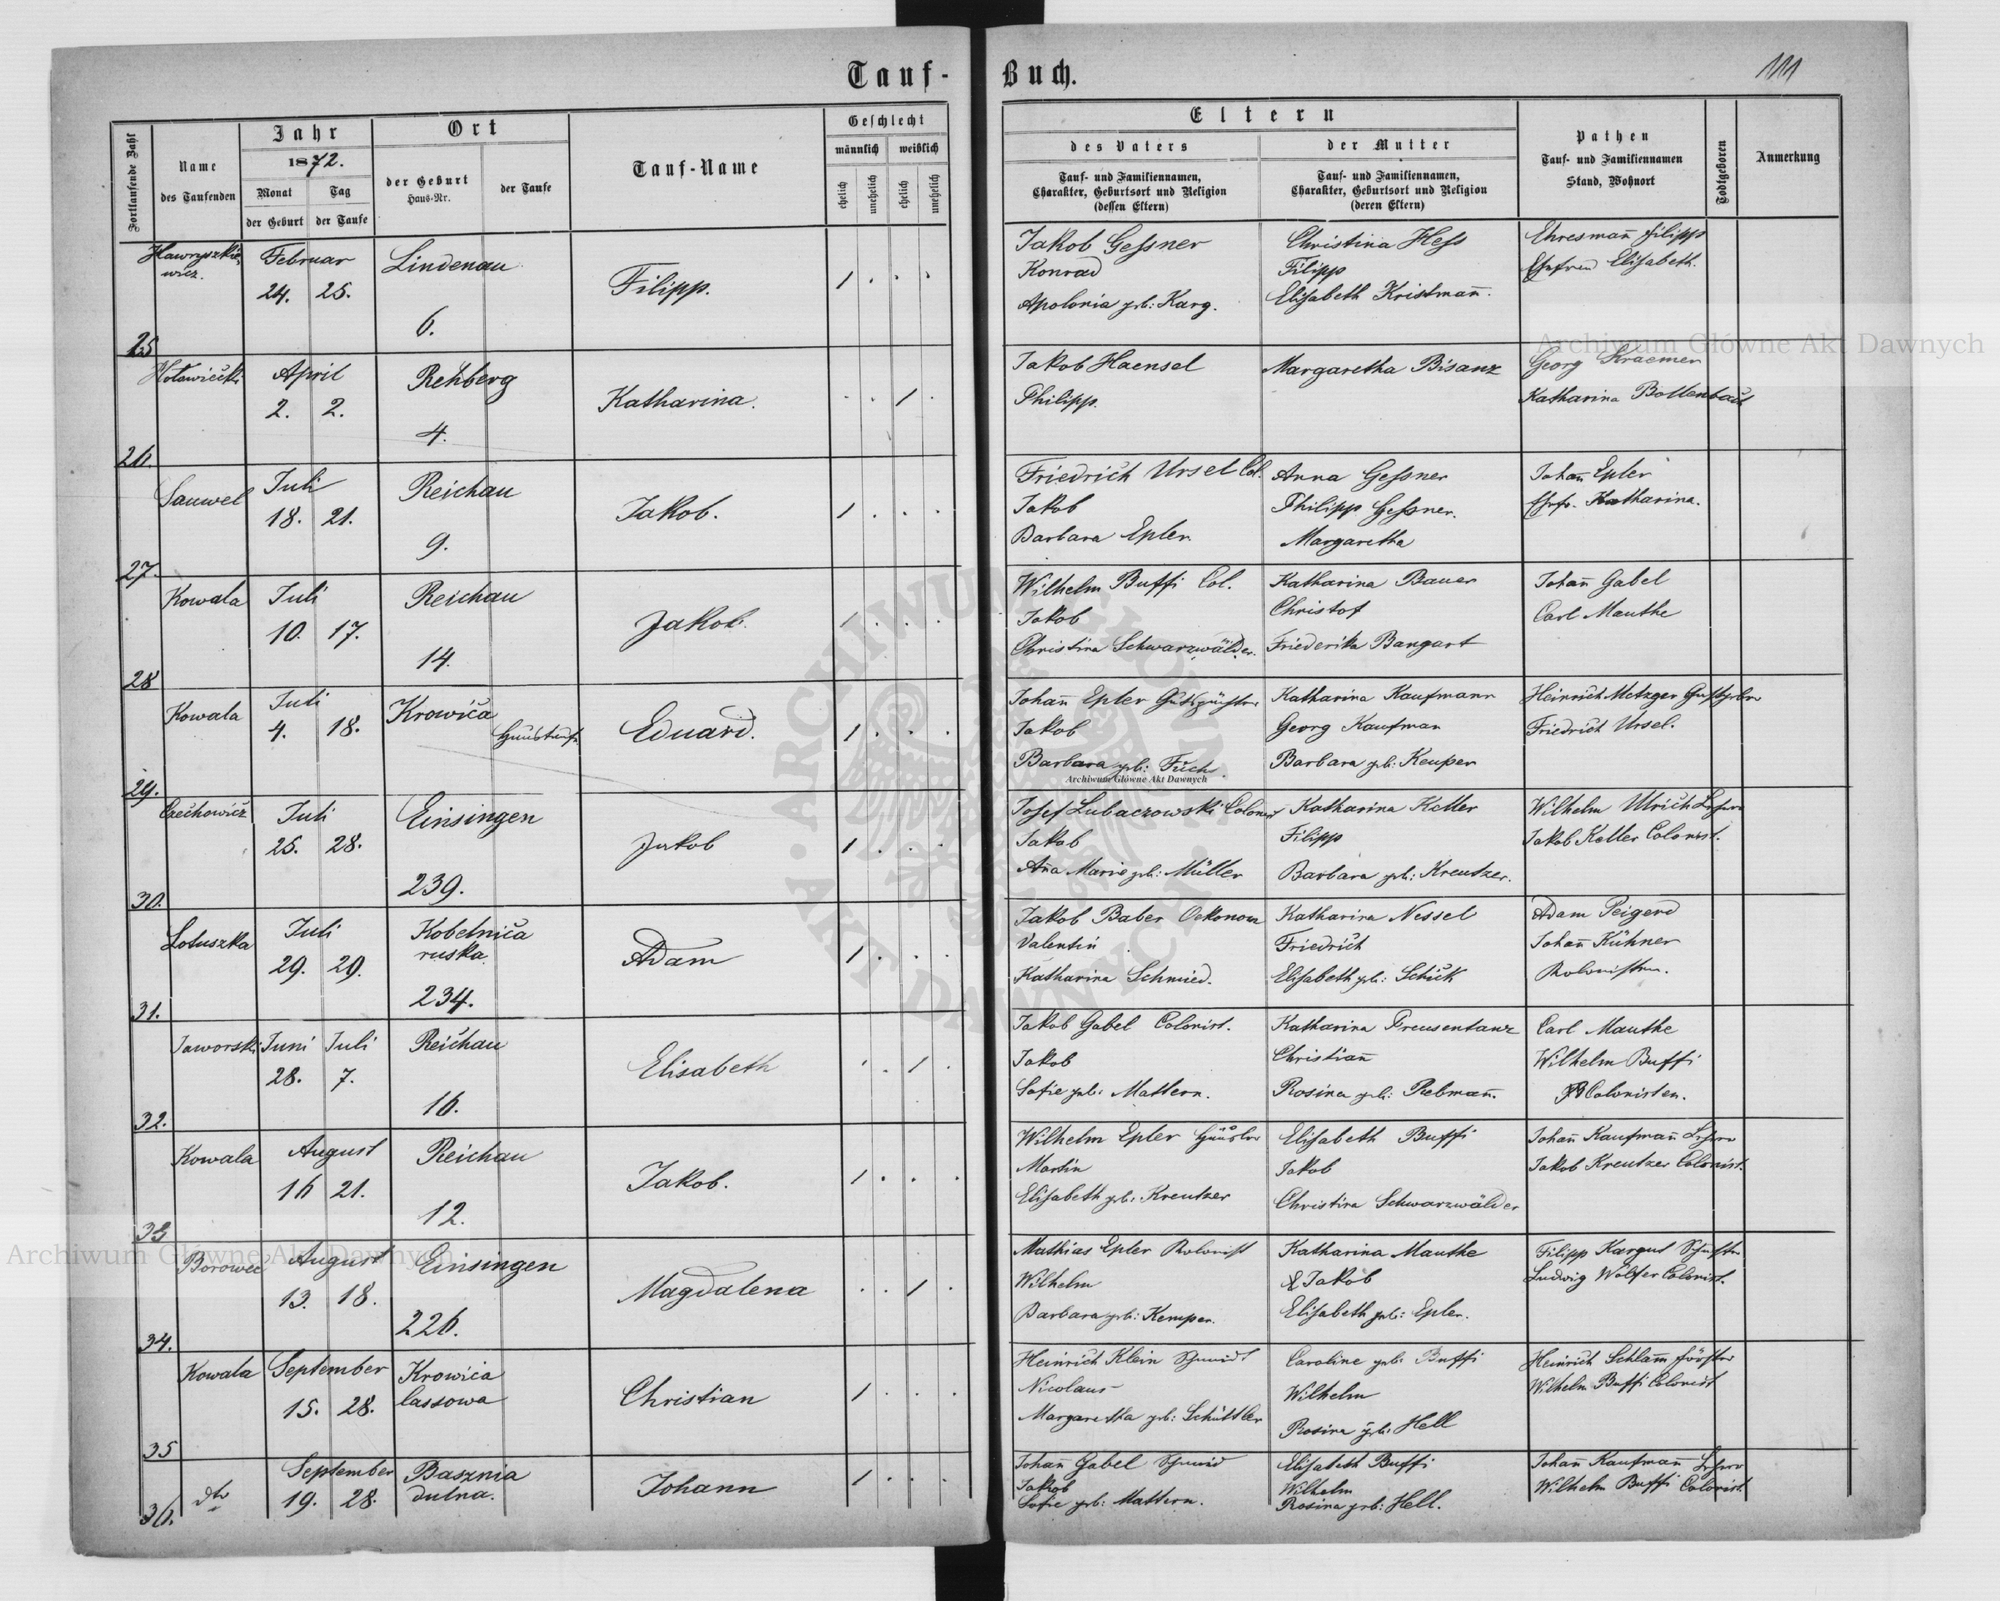 Tauf-Buch.
111
Fortlaufende Zahl
Name
des Taufenden
Jahr
1872.
Monat
der Geburt
Tag
der Taufe
Ort
der Geburt
Haus-Nr.
der Taufe
Tauf-Name
Geschlecht
männlich
weiblich
ehelich
unehelich
ehelich
unehelich
Eltern
des Vaters
Tauf- und Familiennamen,
Charakter, Geburtsort und Religion
(dessen Eltern)
der Mutter
Tauf- und Familiennamen,
Charakter, Geburtsort und Religion
(deren Eltern)
Pathen
Tauf- und Familiennamen
Stand, Wohnort
Todtgeboren
Anmerkung
25
Hawryszkie-
wicz.
Februar
24. 25.
Lindenau
6.
Filipp.
Jakob Gessner
Konrad
Apolonia geb: Karg.
Christina Hess
Filipp
Elisabeth Kristmañ.
Ehresmañ Filipp
Ehefrau Elisabeth.
26.
April
2. 2.
Rehberg
4.
Katharina.
Jakob Haensel
Philipp.
Margaretha Bisanz
Georg Kraemer
Katharina Bollenbach
27.
Sauwel
Juli
18. 21.
Reichau
9.
Jakob.
Friedrich Ursel Col.
Jakob
Barbara Epler
Anna Gessner
Philipp Gessner.
Margaretha
Johañ Epler
Ehefr. Katharina.
28
Kowala
Juli
10. 17.
Reichau
14.
Jakob.
Wilhelm Buffi Col.
Jakob
Christina Schwarzwälder.
Katharina Bauer
Christof
Friederika Bangart
Johañ Gabel
Carl Mauthe
29.
Kowala
Juli
4. 18.
Krowica
Haustaufe
Eduard.
Johañ Epler Gutspächter
Jakob
Barbara geb: Fuchs
Katharina Kaufmann
Georg Kaufman
Barbara geb: Keuper
Heinrich Metzger
Friedrich Ursel.
30.
Czechowicz
Juli
25. 28.
Einsingen
239.
Jakob
Josef Lubaczowski Colonist
Jakob
Aña Marie geb: Müller
Katharina Keller
Filipp
Barbara geb: Kreutzer.
Wilhelm Ulrich Lehrer
Jakob Keller Colonist.
31.
Lotuszka
Juli
29. 29.
Kobelnica
ruska
234.
Adam
Jakob Baber Oekonom
Valentin
Katharina Schmied.
Katharina Nessel
Friedrich
Elisabeth geb: Schick
Adam Peigerd
Johañ Kühner
Kolonisten.
32.
Jaworski
Juni Juli
28. 7.
Reichau
16.
Elisabeth
Jakob Gabel Colonist.
Jakob
Sofie geb: Mattern.
Katharina Freusentanz
Christiañ
Rosina geb: Rebmañ.
Carl Mauthe
Wilhelm Buffi
Colonisten.
33
Kowala
August
16 21.
Reichau
12.
Jakob.
Wilhelm Epler Häusler
Martin
Elisabeth geb: Kreutzer
Elisabeth Buffi
Jakob
Christina Schwarzwälder
Johañ Kaufmañ Lehrer
Jakob Kreutzer Colonist.
34.
Borowec
August
13. 18.
Einsingen
226.
Magdalena
Mathias Epler Kolonist
Wilhelm
Barbara geb: Kemper.
Katharina Mauthe
Jakob
Elisabeth geb: Epler.
Filipp Kargus Schuster
Ludwig Wolfer Colonist.
35
Kowala
September
15. 28.
Krowica
lassowa
Christian
Heinrich Klein Schmidt
Nicolaus
Margaretha geb: Schüttler
Caroline geb: Buffi
Wilhelm
Rosina geb: Hell
Heinrich Schlam̃ Förster
Wilhelm Buffi Colonist
36.
dto
September
19. 28.
Basznia
dulna.
Johann
Johañ Gabel Schmid
Jakob
Sofie geb: Mattern.
Elisabeth Buffi
Wilhelm
Rosina geb: Hell.
Johañ Kaufmañ Lehrer
Wilhelm Buffi Colonist.
Archiwum Główne Akt Dawnych
Archiwum Główne Akt Dawnych
Archiwum Główne Akt Dawnych
ARCHIWUM GŁÓWNE · AKT DAWNYCH ·